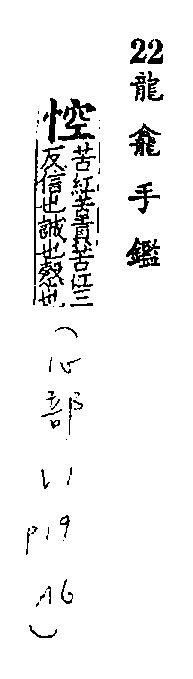 22龍龕手鑑
悾
苦紅苦貢苦江三
反信也誠也慤也
(心部
p19